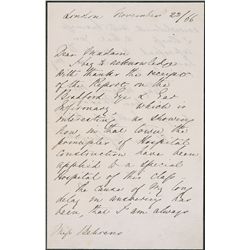 London November 22/66
Dear Madam
I beg to acknowledge
with thanks the receipt
of the Report on the
Bradford Eye & Ear
Infirmary, which is
interesting as showing
how, in that town the
principles of Hospital
Construction have been
applied to a special
Hospital of this class.
The cause of my long
delay in answering has
been, that I am always
Miss Behrens